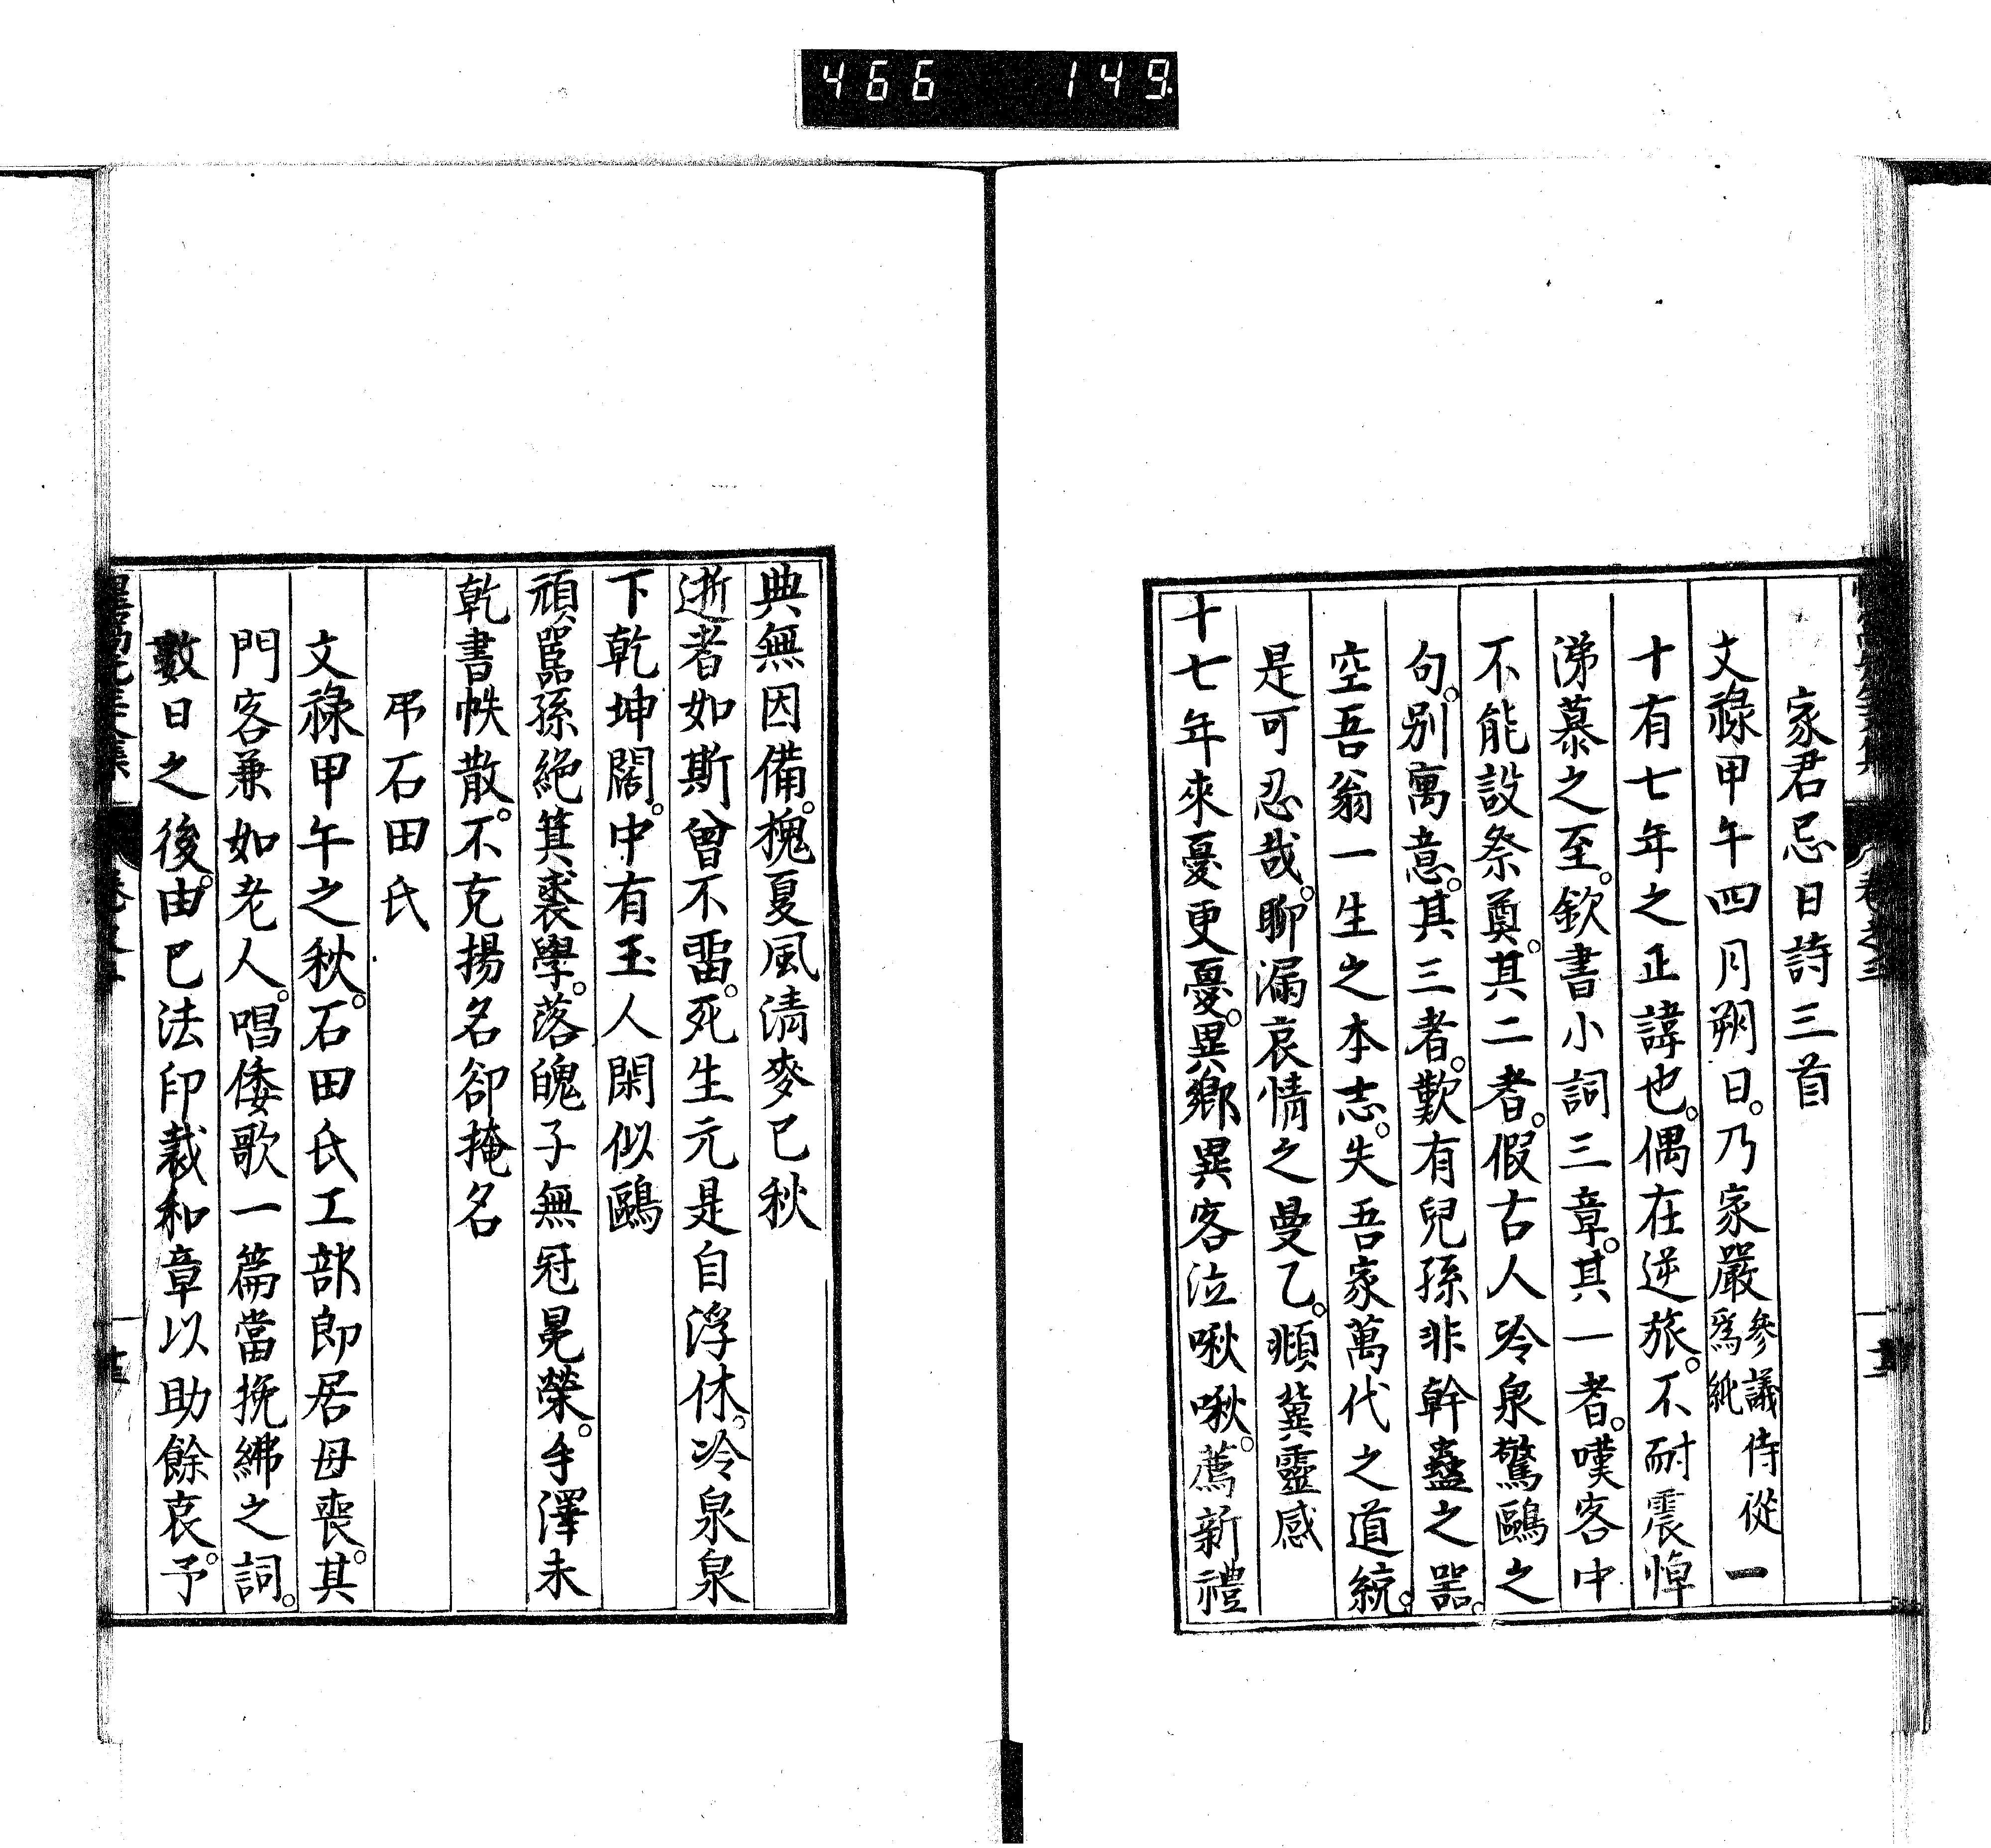 466 149
家君忌日詩三首
文祿甲午四月朔日。乃家嚴參議侍從爲純一
十有七年之正諱也。偶在逆旅。不耐震悼
涕慕之至。欽書小詞三章。其一者。嘆客中
不能設祭奠。其二者。假古人冷泉驚鷗之
句。別寓意。其三者。歎有兒孫非幹蠱之器。
空吾翁一生之本志。失吾家萬代之道統。
是可忍哉。聊漏哀情之曼乙。頫冀靈感
十七年來憂更憂。異鄉異客泣啾啾。薦新禮
典無因備。槐夏風淸麥已秋
逝者如斯曾不畱。死生元是自浮休。冷泉泉
下乾坤闊。中有玉人閑似鷗
頑嚚孫絶箕裘學。落魄子無冠冕榮。手澤未
乾書帙散。不克揚名卻掩名
弔石田氏
文祿甲午之秋。石田氏工部郎居母喪。其
門客兼如老人。唱倭歌一篇當挽紼之詞。
數日之後。由己法印裁和章以助餘哀。予